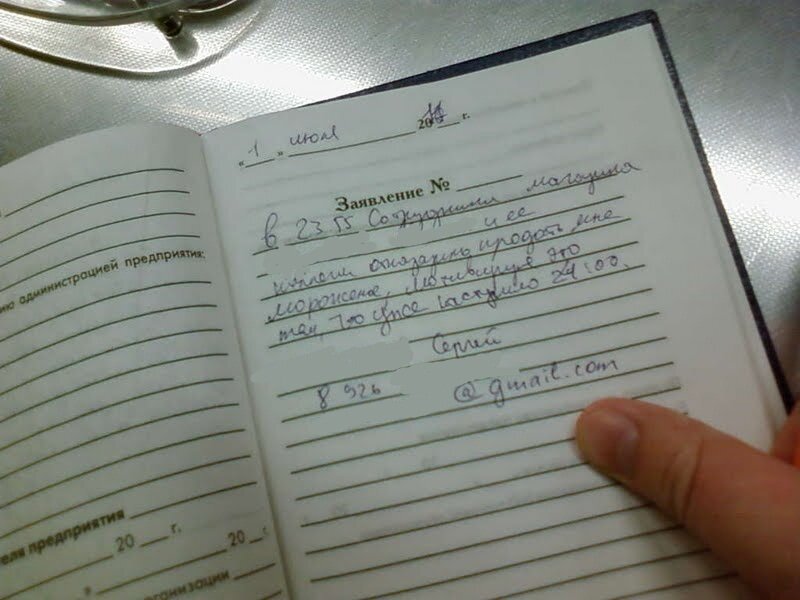 нию администрацией предприятия:
теля предприятия
20 г.
» 20
организации
« 1 » июля 20 г.
Заявление №
В 23 55 Сотрудники магазина
и ее
коллеги отказались продать мне
мороженое, мотивируя это
тем, что уже наступило 24:00.
Сергей
8 926 @gmail.com